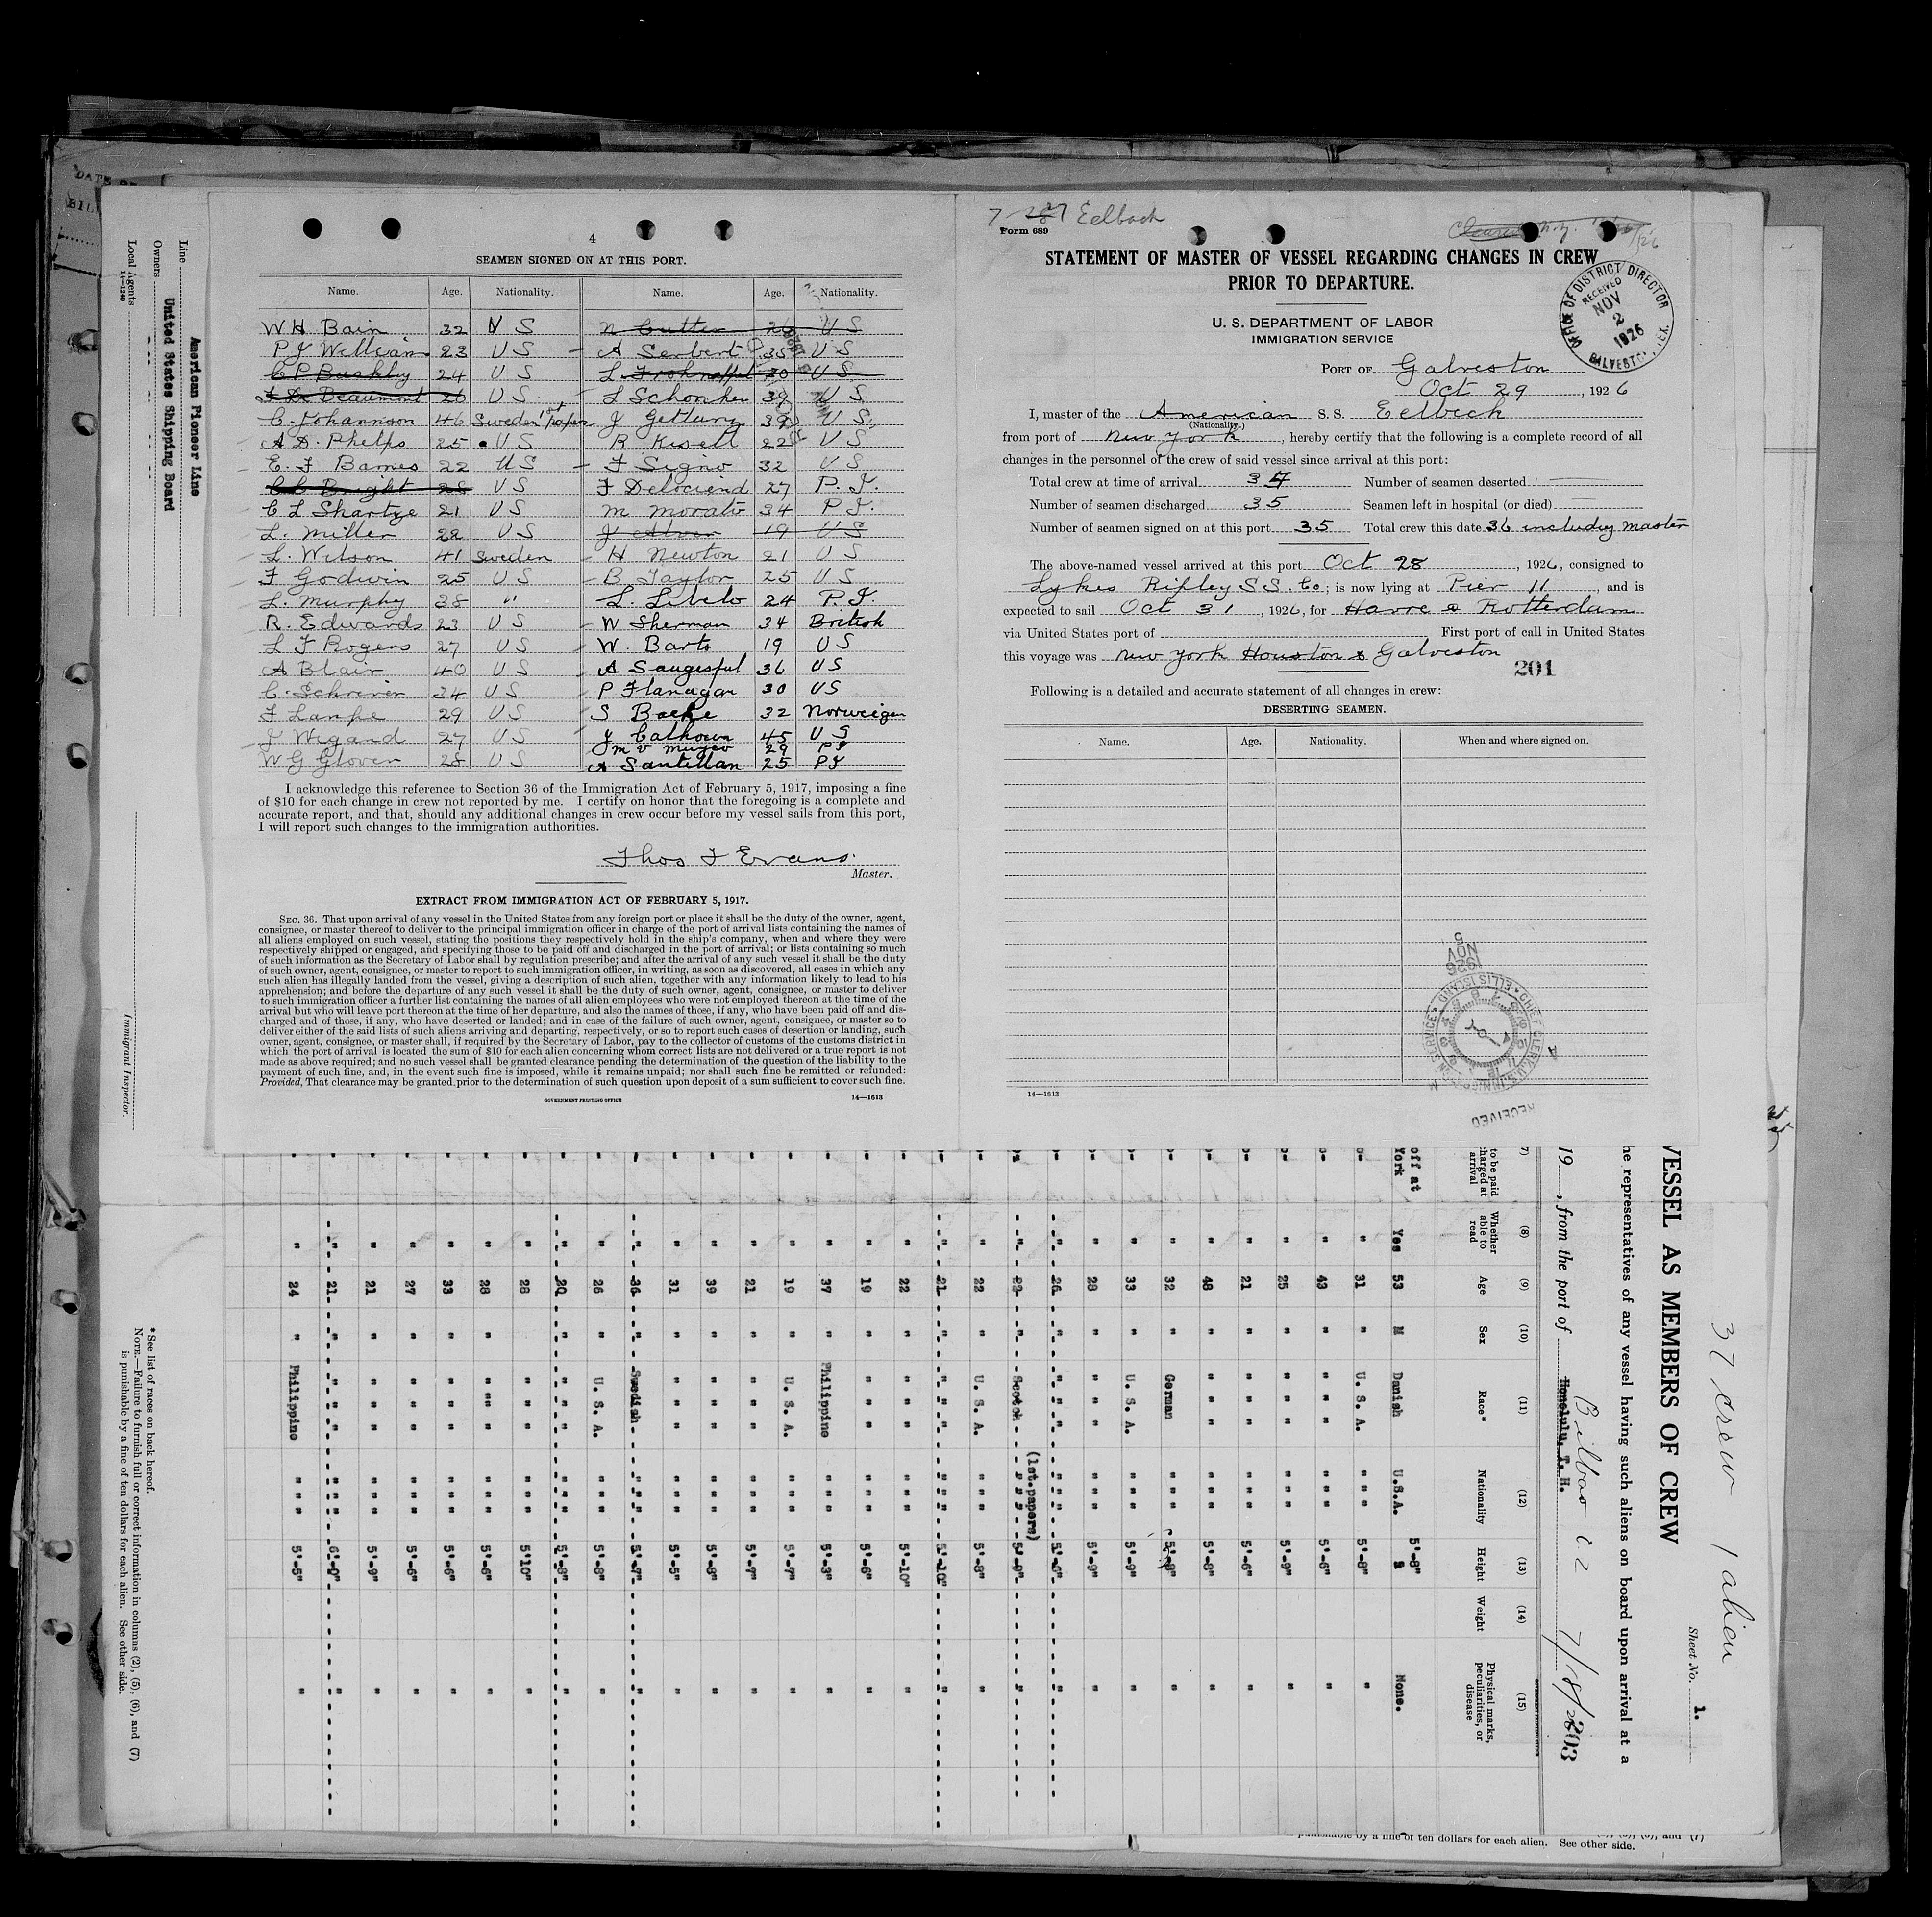 4
SEAMEN SIGNED ON AT THIS PORT.
Name. Age. Nationality. Name. Age. Nationality.
W H Bain 32 U S N Cutter 26 U S
P J William 23 U S A Serbert 35 U S
C P Bushby 24 U S L 30 U S
Beaumont 26 U S L Schonker 39 U S
C. Johannson 46 Sweden 1st paper J Gettung 39 U S
A. D. Phelps 25 U S R Kisell 22 U S
E. F Barnes 22 U S F Signo 32 U S
C C Bright 28 U S F Delociend 27 P. I.
C L Shartze 21 U S M Morato 34 P I.
L. Miller 22 U S J 19 U S
L. Wilson 41 Sweden H Newton 21 U S
F Godwin 25 U S B Taylor 25 U S
L. Murphy 38 " L. Libelo 24 P. I.
R. Edwards 23 U S W Sherman 34 British
L F Rogers 27 U S W. Barto 19 U S
A Blair 40 U S A Saugesful 36 U S
C. Schriver 34 U S P Flanagan 30 U S
F Lanpe 29 U S S Backe 32 Norweigen
J Wegand 27 U S J Calhoun 45 U S
W G Glover 28 U S 29 P I
A Santillan 25 P I
I acknowledge this reference to Section 36 of the Immigration Act of February 5, 1917, imposing a fine
of $10 for each change in crew not reported by me. I certify on honor that the foregoing is a complete and
accurate report, and that, should any additional changes in crew occur before my vessel sails from this port,
I will report such changes to the immigration authorities.
Thos F Evans.
Master.
EXTRACT FROM IMMIGRATION ACT OF FEBRUARY 5, 1917.
SEC. 36. That upon arrival of any vessel in the United States from any foreign port or place it shall be the duty of the owner, agent,
consignee, or master thereof to deliver to the principal immigration officer in charge of the port of arrival lists containing the names of
all aliens employed on such vessel, stating the positions they respectively hold in the ship's company, when and where they were
respectively shipped or engaged, and specifying those to be paid off and discharged in the port of arrival; or lists containing so much
of such information as the Secretary of Labor shall by regulation prescribe; and after the arrival of any such vessel it shall be the duty
of such owner, agent, consignee, or master to report to such immigration officer, in writing, as soon as discovered, all cases in which any
such alien has illegally landed from the vessel, giving a description of such alien, together with any information likely to lead to his
apprehension; and before the departure of any such vessel it shall be the duty of such owner, agent, consignee, or master to deliver
to such immigration officer a further list containing the names of all alien employees who were not employed thereon at the time of the
arrival but who will leave port thereon at the time of her departure, and also the names of those, if any, who have been paid off and dis-
charged and of those, if any, who have deserted or landed; and in case of the failure of such owner, agent, consignee, or master so to
deliver either of the said lists of such aliens arriving and departing, respectively, or so to report such cases of desertion or landing, such
owner, agent, consignee, or master shall, if required by the Secretary of Labor, pay to the collector of customs of the customs district in
which the port of arrival is located the sum of $10 for each alien concerning whom correct lists are not delivered or a true report is not
made as above required; and no such vessel shall be granted clearance pending the determination of the question of the liability to the
payment of such fine, and, in the event such fine is imposed, while it remains unpaid; nor shall such fine be remitted or refunded:
Provided, That clearance may be granted prior to the determination of such question upon deposit of a sum sufficient to cover such fine.
GOVERNMENT PRINTING OFFICE 14—1613
7 27 Eelback
Form 689
STATEMENT OF MASTER OF VESSEL REGARDING CHANGES IN CREW
PRIOR TO DEPARTURE.
U. S. DEPARTMENT OF LABOR
IMMIGRATION SERVICE
OFFICE OF DISTRICT DIRECTOR
RECEIVED
NOV
2
1926
GALVESTON, TEX.
PORT OF Galveston
Oct 29, 1926
I, master of the American S. S. Eelbeck
(Nationality.)
from port of New York, hereby certify that the following is a complete record of all
changes in the personnel of the crew of said vessel since arrival at this port:
Total crew at time of arrival 37 Number of seamen deserted
Number of seamen discharged 35 Seamen left in hospital (or died)
Number of seamen signed on at this port 35 Total crew this date 36 including master
The above-named vessel arrived at this port Oct 28, 1926, consigned to
Lykes Ripley S.S. Co.; is now lying at Pier 11, and is
expected to sail Oct 31, 1926, for Havre & Rotterdam
via United States port of First port of call in United States
this voyage was New York Houston & Galveston
201
Following is a detailed and accurate statement of all changes in crew:
DESERTING SEAMEN.
Name. Age. Nationality. When and where signed on.
NOV 5 1926
CHIEF CLERK U.S. IMMIGRATION SERVICE ELLIS ISLAND
RECEIVED
14—1613
Line American Pioneer Line
Owners United States Shipping Board
Local Agents
14—1240
Immigrant Inspector.
37 crew 1 alien
Sheet No. 1.
VESSEL AS MEMBERS OF CREW
he representatives of any vessel having such aliens on board upon arrival at a
19, from the port of Honolulu, T. H. Bilbao C Z 7/18/26
203
(7) (8) (9) (10) (11) (12) (13) (14) (15)
to be paid charged at arrival Whether able to read Age Sex Race* Nationality Height Weight Physical marks, peculiarities, or disease
off at York Yes 53 M Danish U.S.A. 5'-8" None.
" 31 " U. S. A. " " " 5'-8" "
" 43 " " " " " " " 5'-6" "
" 25 " " " " " " " 5'-9" "
" 21 " " " " " " " 5'-6" "
" 48 " " " " " " " 5'-8" "
" 32 " German " " " 5'-8" "
" 33 " U. S. A. " " " 5'-9" "
" 28 " " " " " " " 5'-9" "
" 26 " " " " " " "
(1st.papers)
" 22 " Scotch " " " 5'-9" "
" 22 " U. S. A. " " " 5'-8" "
" 21 " " " " " " " 5'-10" "
" 22 " " " " " " " 5'-10" "
" 19 " " " " " " " 5'-6" "
" 37 " Philippino " " " 5'-3" "
" 19 " U. S. A. " " " 5'-7" "
" 21 " " " " " " " 5'-7" "
" 39 " " " " " " " 5'-8" "
" 31 " " " " " " " 5'-5" "
" 36 " Swedish " " " 5'-7" "
" 26 " U. S. A. " " " 5'-8" "
" 20 " " " " " " " 5'-8" "
" 28 " " " " " " " 5'10" "
" 28 " " " " " " " 5'-6" "
" 33 " " " " " " " 5'-6" "
" 27 " " " " " " " 5'-6" "
" 21 " " " " " " " 5'-9" "
" 21 " " " " " " " 6'-0" "
" 24 " Philippino " " " 5'-5" "
*See list of races on back hereof.
NOTE.—Failure to furnish full or correct information in columns (2), (5), (6), and (7)
is punishable by a fine of ten dollars for each alien. See other side.
punishable by a fine of ten dollars for each alien. See other side.